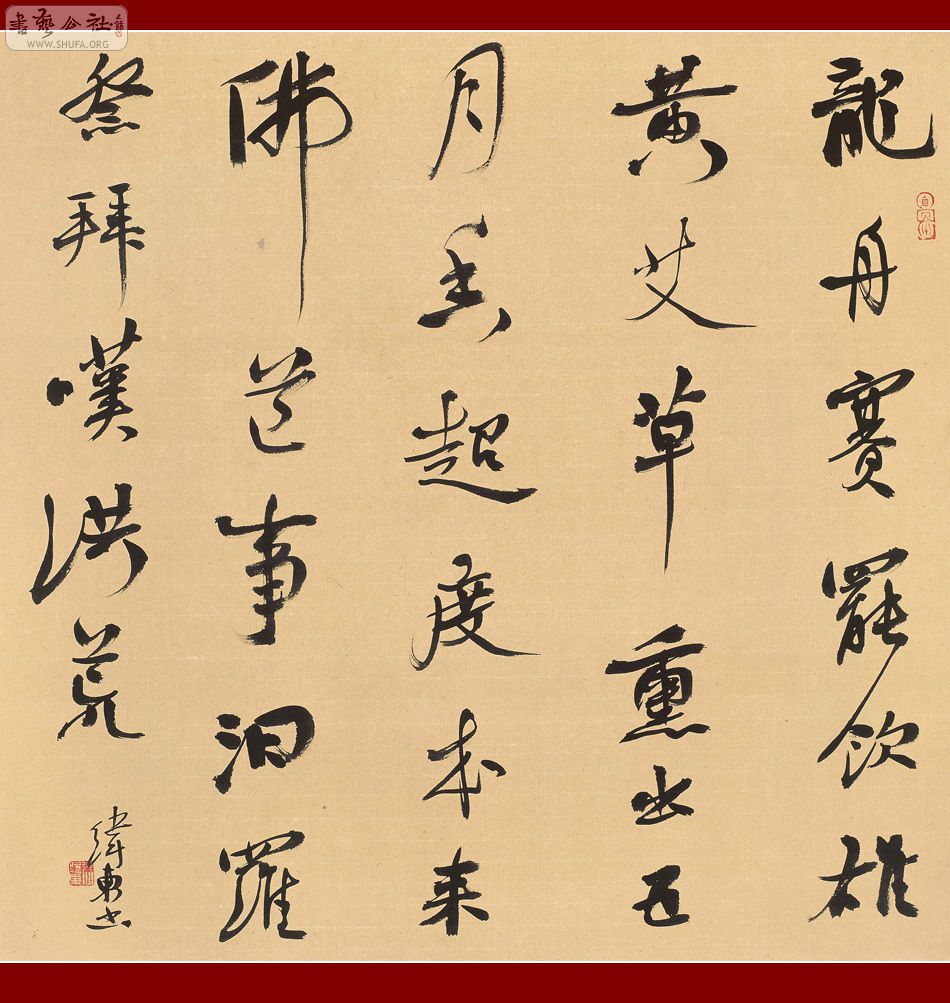 書藝公社
WWW.SHUFA.ORG
龍舟賽罷飲雄
黃艾草熏出五
月香超度本來
佛道事汨羅
祭拜嘆洪荒
緯東书